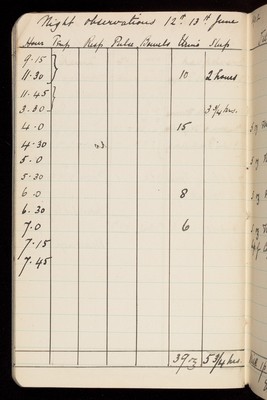 Night observations 12th 13th June
Hour Temp Resp Pulse Bowels Urine Sleep
9.15
11.30 10 2 hours
11.45
3.30 3 3/4 hrs.
4.0 15
4.30
5.0
5.30
6.0 8
6.30
7.0 6
7.15
7.45
39 oz 5 3/4 hrs.